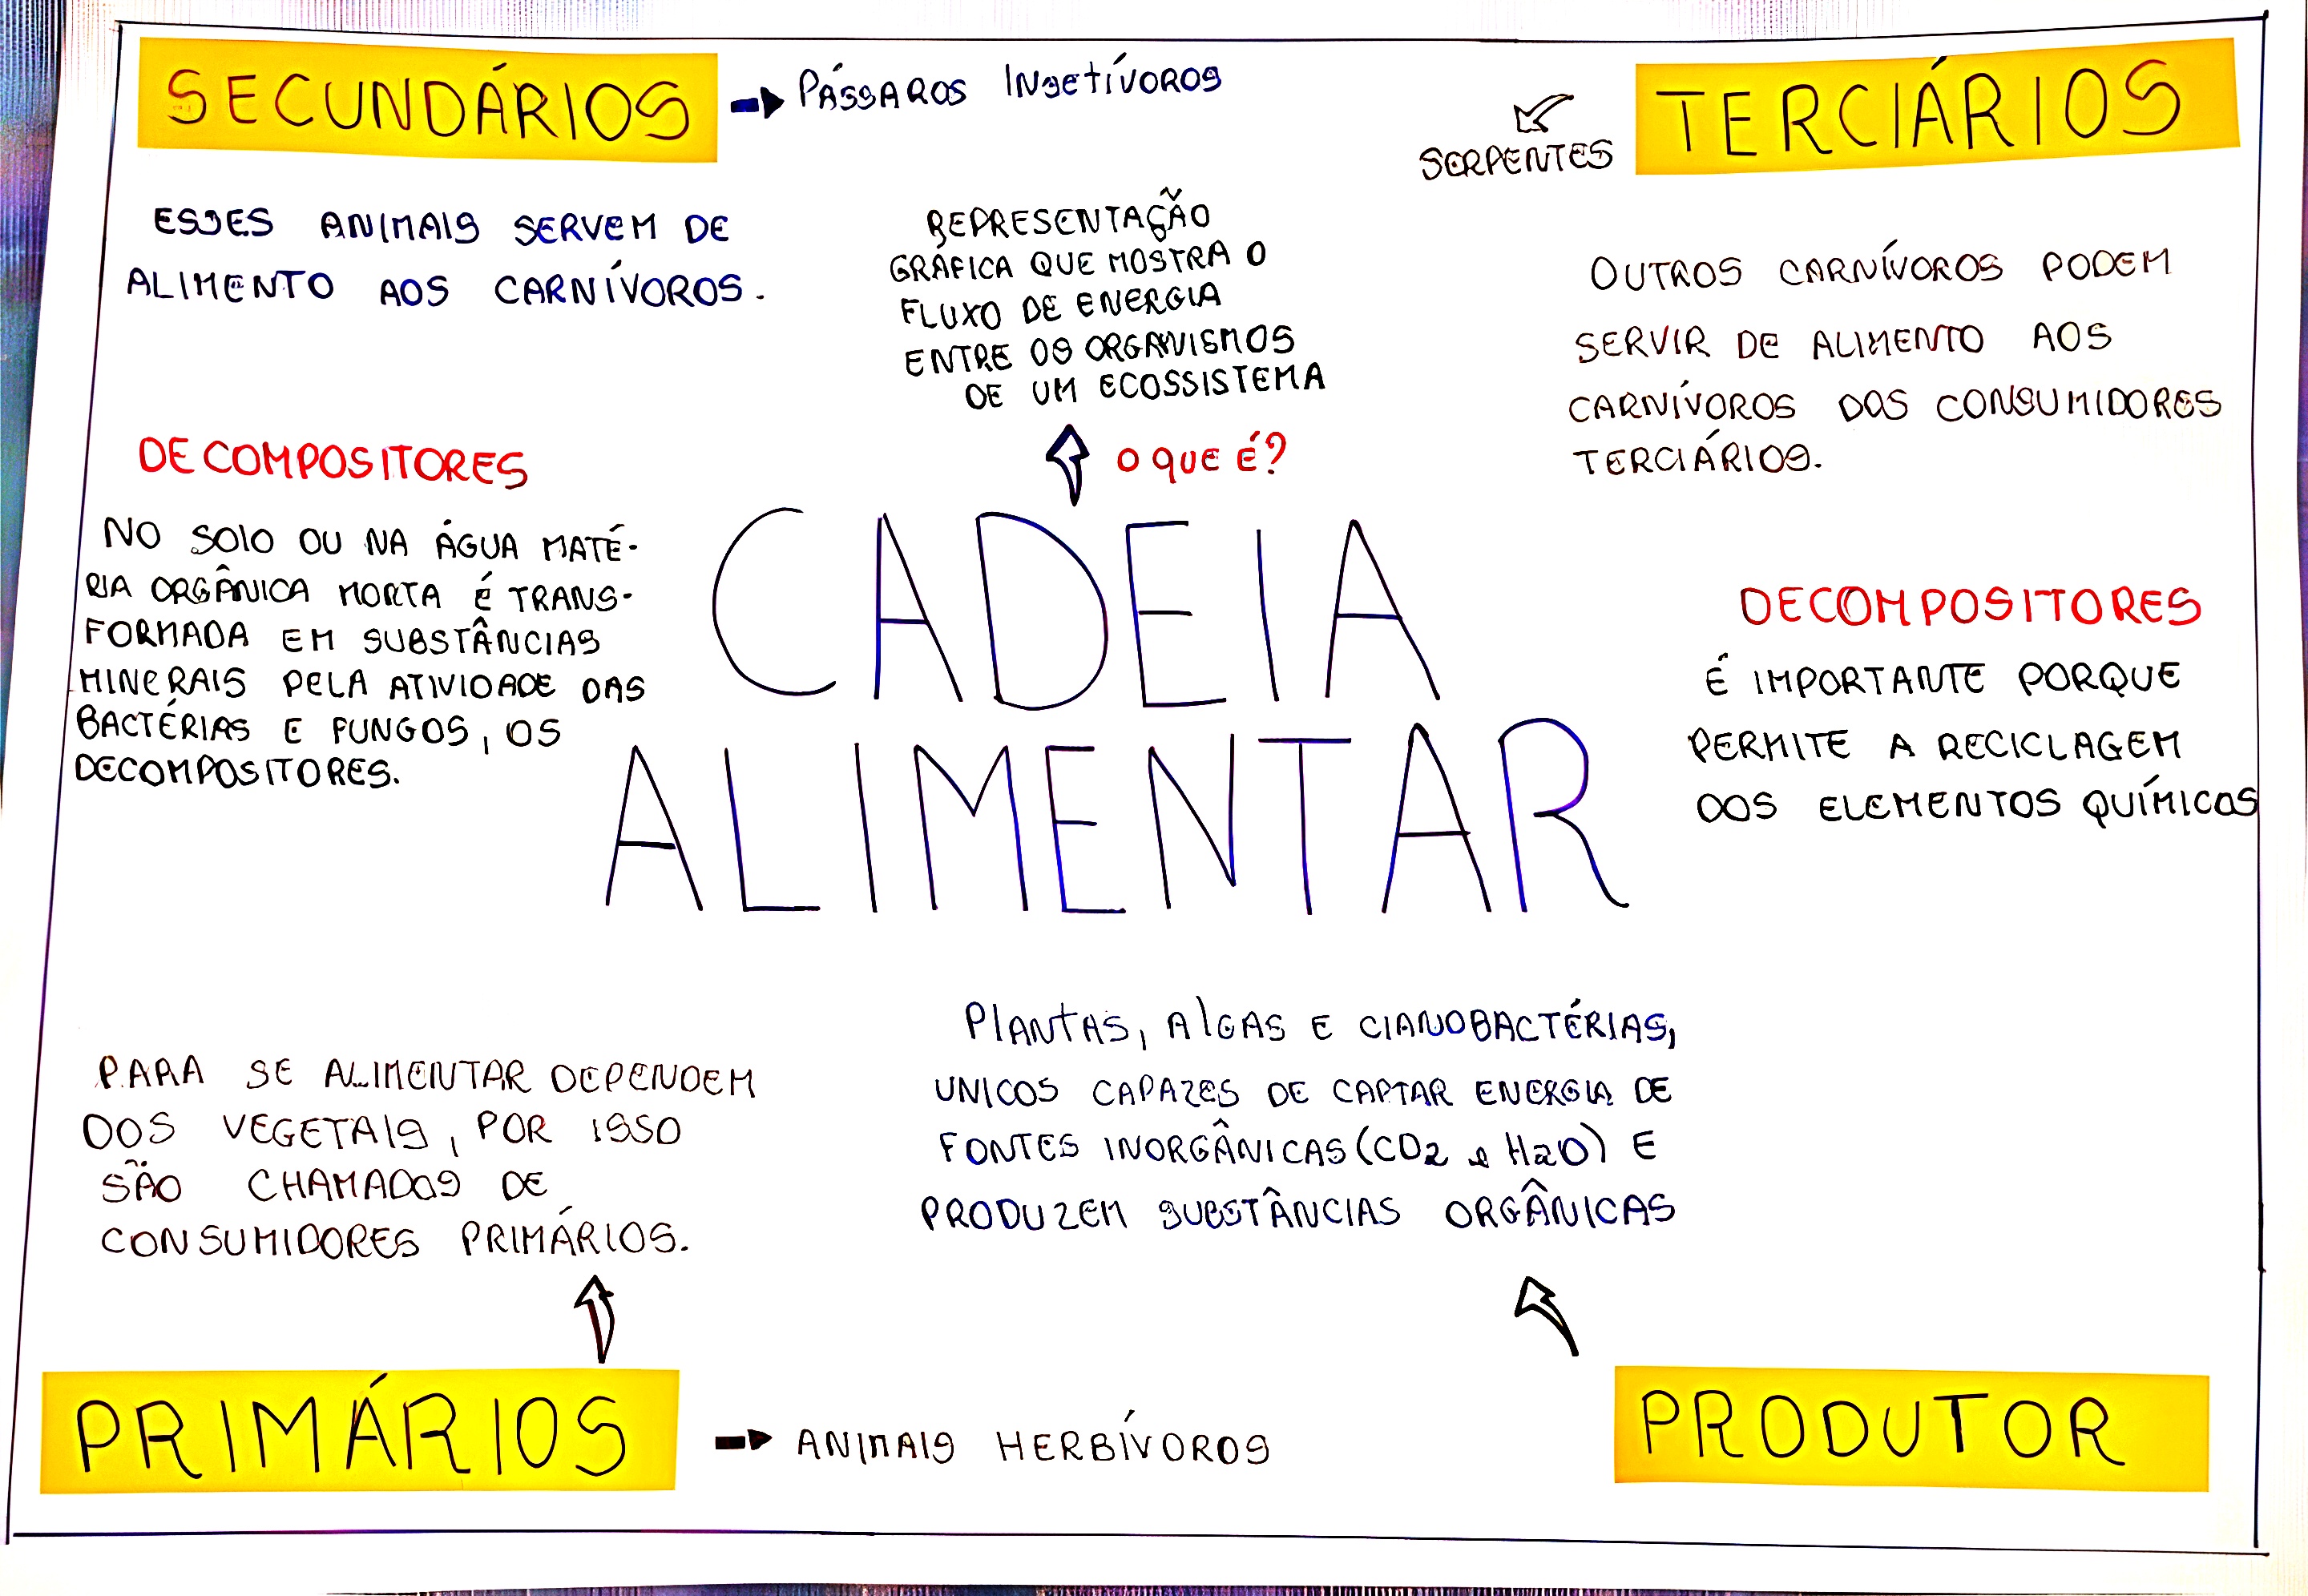 SECUNDÁRIOS
PÁSSAROS INSETÍVOROS
ESSES ANIMAIS SERVEM DE
ALIMENTO AOS CARNÍVOROS.
TERCIÁRIOS
SERPENTES
OUTROS CARNÍVOROS PODEM
SERVIR DE ALIMENTO AOS
CARNÍVOROS DOS CONSUMIDORES
TERCIÁRIOS.
REPRESENTAÇÃO
GRÁFICA QUE MOSTRA O
FLUXO DE ENERGIA
ENTRE OS ORGANISMOS
DE UM ECOSSISTEMA
O QUE É?
CADEIA
ALIMENTAR
DECOMPOSITORES
NO SOLO OU NA ÁGUA MATÉ-
RIA ORGÂNICA MORTA É TRANS-
FORMADA EM SUBSTÂNCIAS
MINERAIS PELA ATIVIDADE DAS
BACTÉRIAS E FUNGOS, OS
DECOMPOSITORES.
DECOMPOSITORES
É IMPORTANTE PORQUE
PERMITE A RECICLAGEM
DOS ELEMENTOS QUÍMICOS
PARA SE ALIMENTAR DEPENDEM
DOS VEGETAIS, POR ISSO
SÃO CHAMADOS DE
CONSUMIDORES PRIMÁRIOS.
PRIMÁRIOS
ANIMAIS HERBÍVOROS
PLANTAS, ALGAS E CIANOBACTÉRIAS,
UNICOS CAPAZES DE CAPTAR ENERGIA DE
FONTES INORGÂNICAS (CO2 e H2O) E
PRODUZEM SUBSTÂNCIAS ORGÂNICAS
PRODUTOR